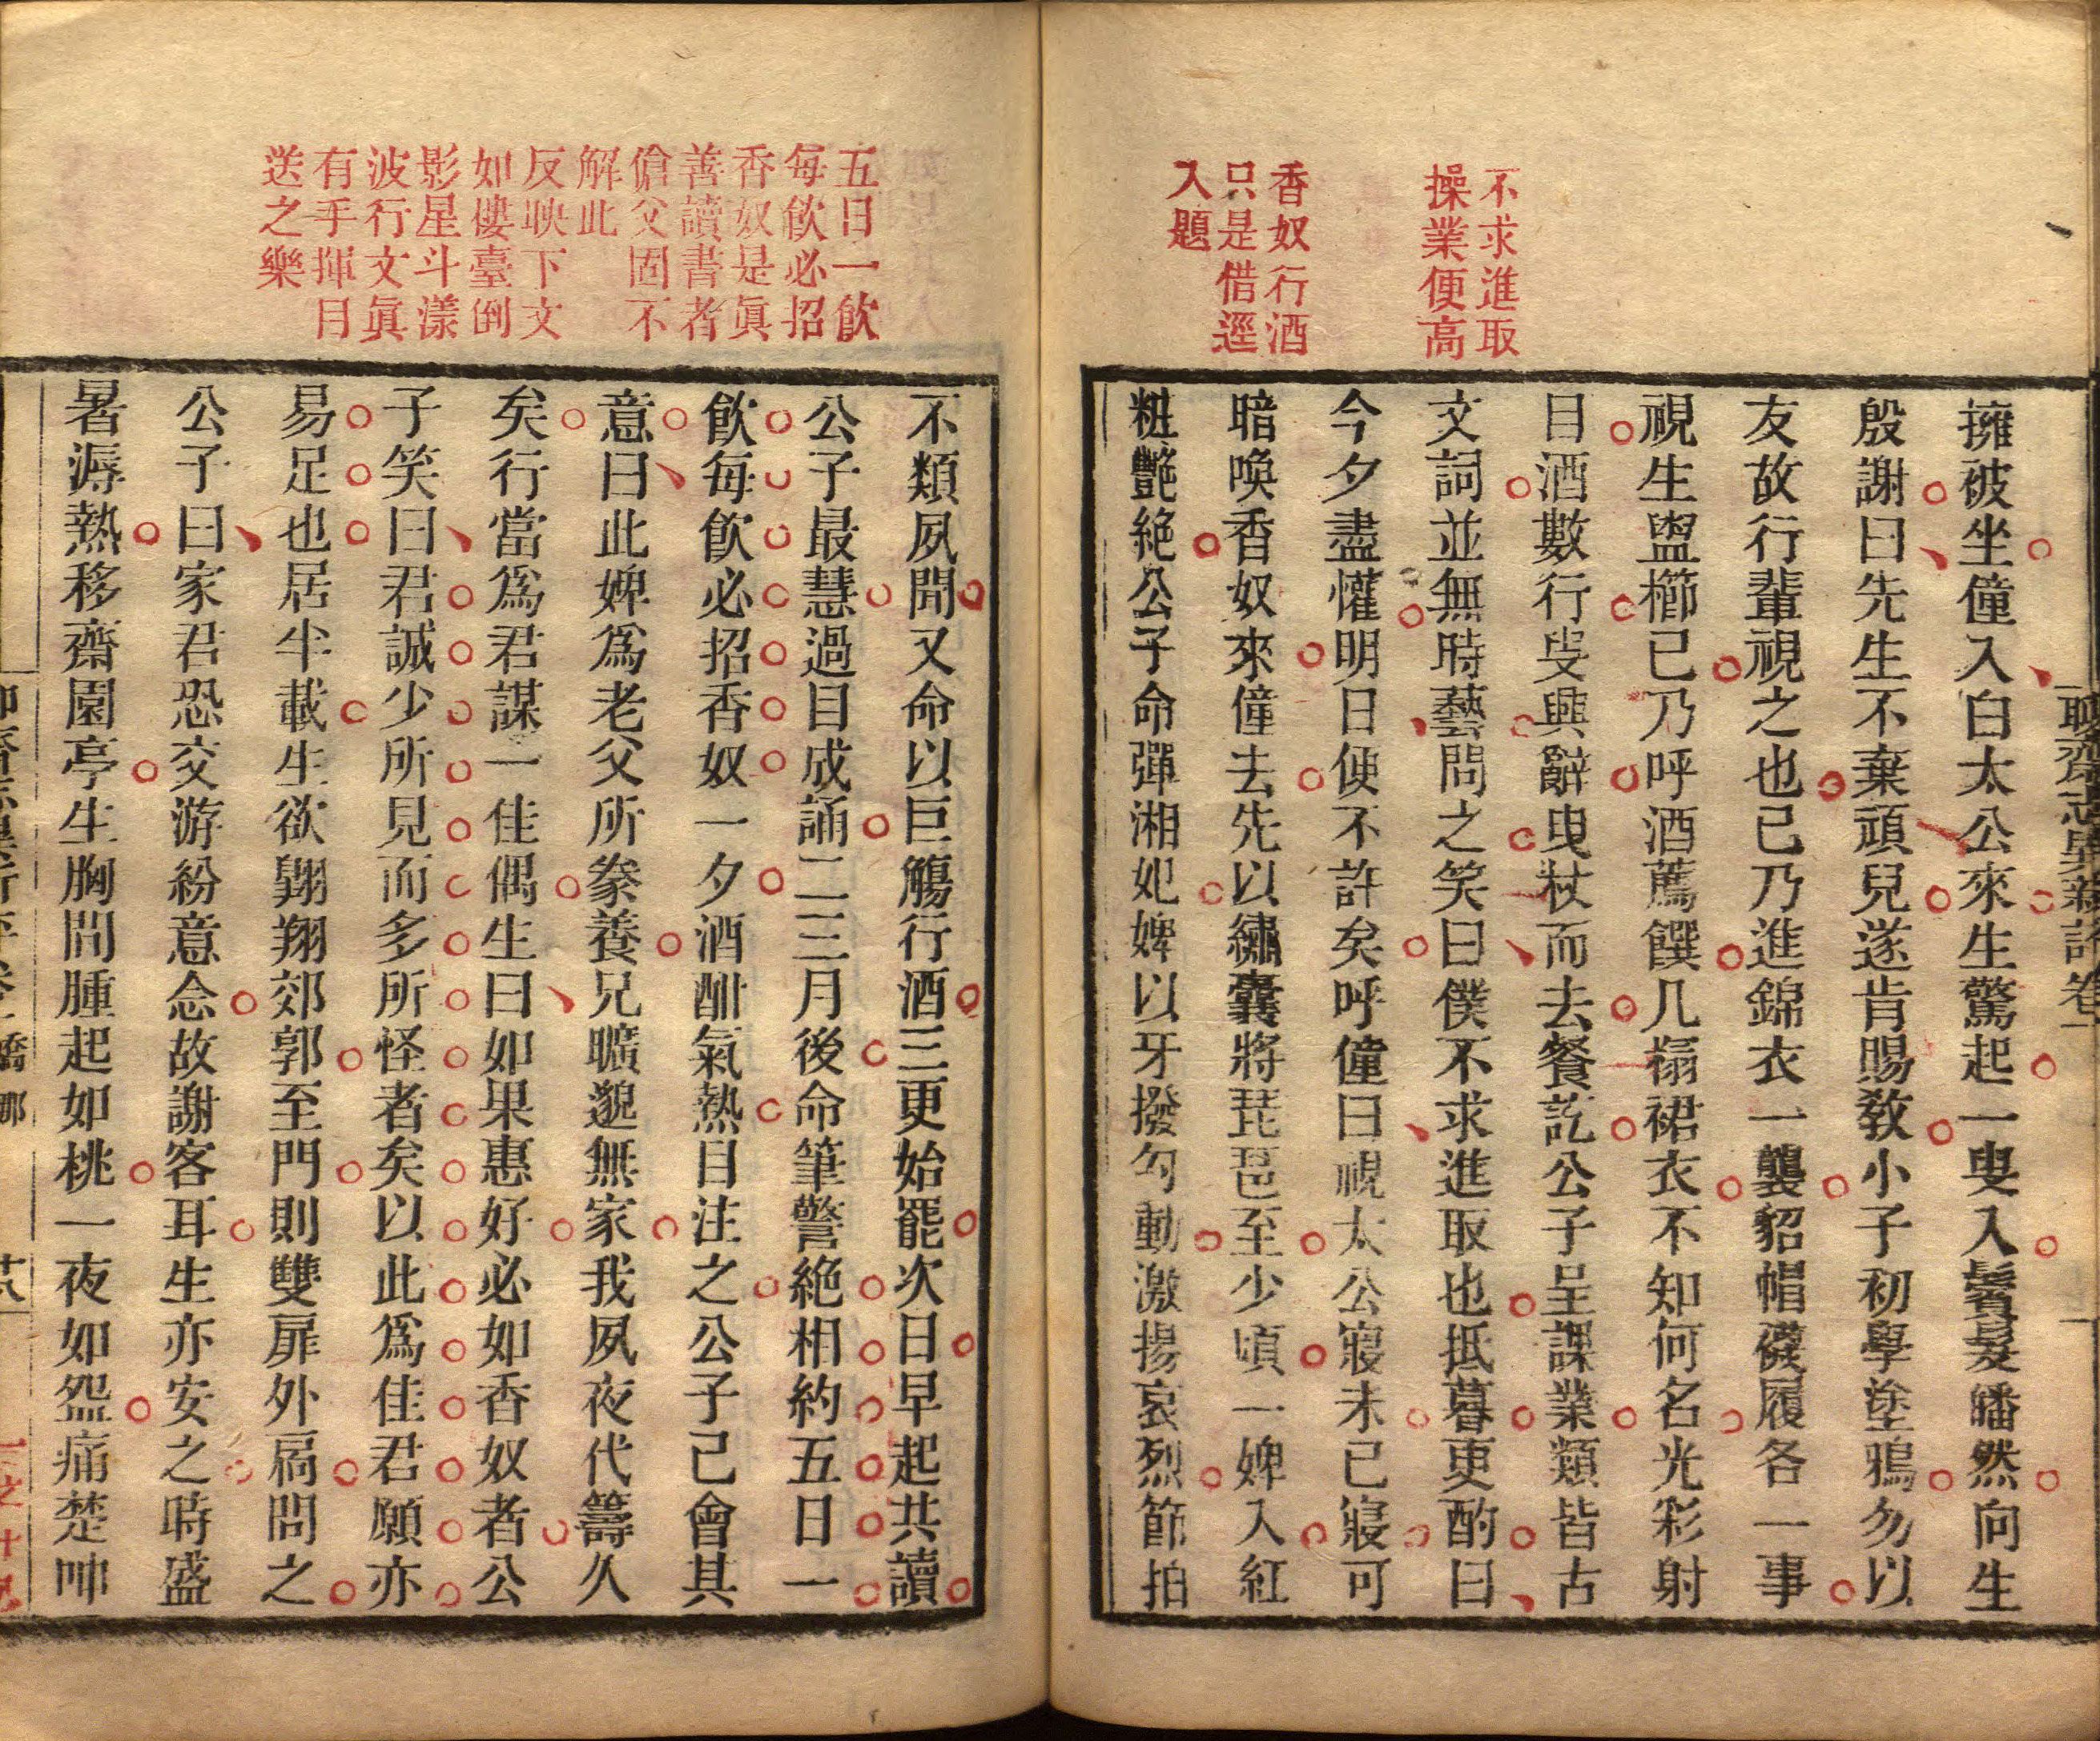 聊齋志異新評卷一
不求進取
操業便高
香奴行酒
只是借逕
入題
擁被坐僮入白太公來生驚起一叟入鬢髮皤然向生
殷謝曰先生不棄頑兒遂肯賜教小子初學塗鴉勿以
友故行輩視之也已乃進錦衣一襲貂帽襪履各一事
視生盥櫛已乃呼酒薦饌几榻裙衣不知何名光彩射
目酒數行叟興辭曳杖而去餐訖公子呈課業類皆古
文詞並無時藝問之笑曰僕不求進取也抵暮更酌曰
今夕盡懽明日便不許矣呼僮曰視太公寢未已寢可
暗喚香奴來僮去先以繡囊將琵琶至少頃一婢入紅
粧艷絕公子命彈湘妃婢以牙撥勾動激揚哀烈節拍
五日一飲
每飲必招
香奴是眞
善讀書者
傖父固不
解此
反映下文
如僂臺倒
影星斗漾
波行文眞
有手揮目
送之樂
不類夙聞又命以巨觴行酒三更始罷次日早起共讀
公子最慧過目成誦二三月後命筆警絕相約五日一
飲每飲必招香奴一夕酒酣氣熱目注之公子已會其
意曰此婢爲老父所豢養兄曠邈無家我夙夜代籌久
矣行當爲君謀一佳偶生曰如果惠好必如香奴者公
子笑曰君誠少所見而多所怪者矣以此爲佳君願亦
易足也居半載生欲翺翔郊郭至門則雙扉外扃問之
公子曰家君恐交游紛意念故謝客耳生亦安之時盛
暑溽熱移齋園亭生胸間腫起如桃一夜如盌痛楚呻
嬌娜